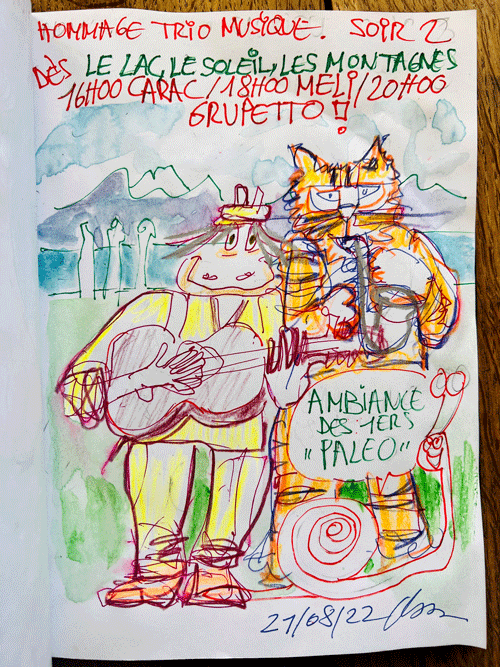 HOMMAGE TRIO MUSIQUE. SOIR 2
DÈS LE LAC, LE SOLEIL, LES MONTAGNES
16H00 CARAC / 18H00 MELI / 20H00
GRUPETTO !
AMBIANCE
DES 1ERS
"PALEO"
21/08/22